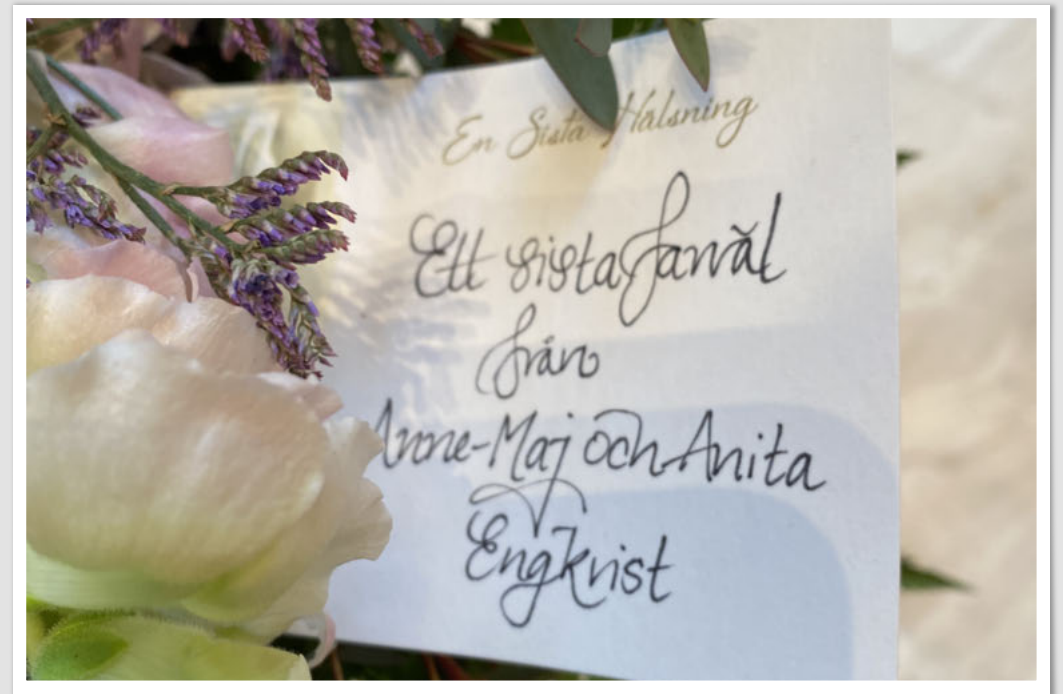 En Sista Hälsning
Ett sista farväl
från
Anne-Maj och Anita
Engkvist